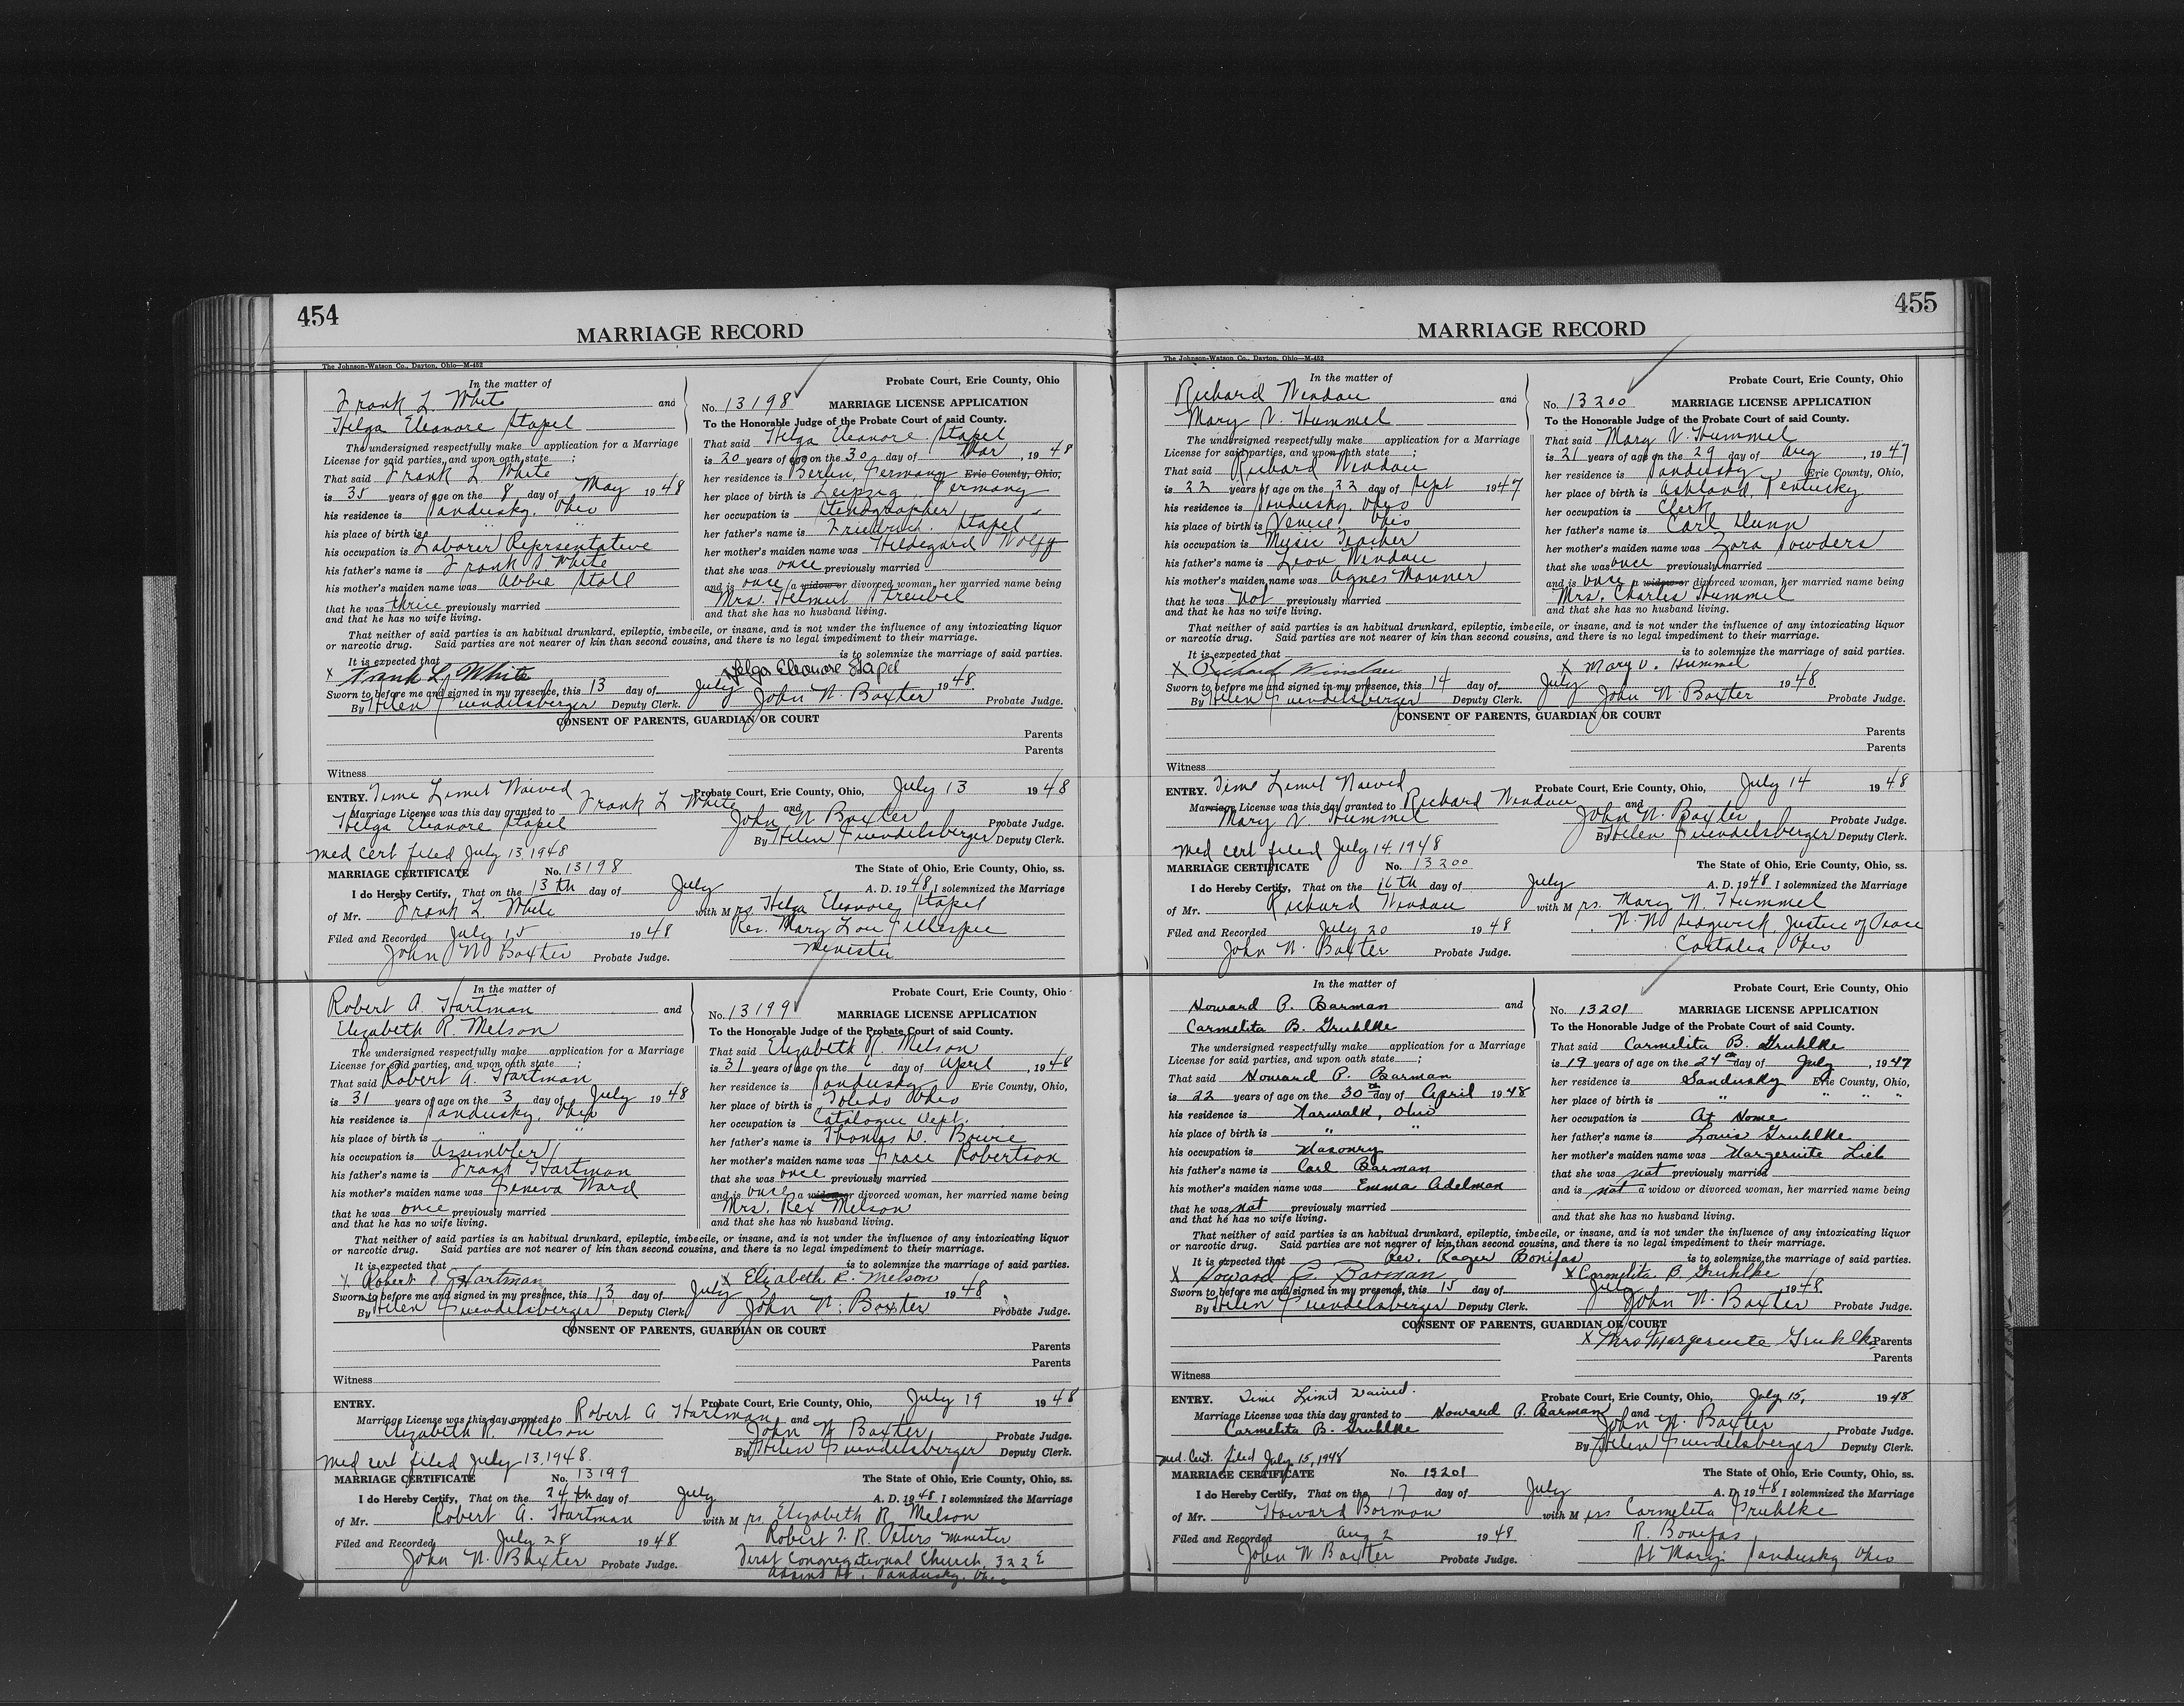 454
MARRIAGE RECORD
The Johnson-Watson Co., Dayton, Ohio—M-452
In the matter of
Frank L. White and
Helga Eleanore Stapel
The undersigned respectfully make application for a Marriage
License for said parties, and upon oath state ;
That said Frank L White
is 35 years of age on the 8 day of May 1948
his residence is Sandusky, Ohio
his place of birth is " "
his occupation is Laborer Reprsentative
his father's name is Frank S White
his mother's maiden name was Abbie Stoll
that he was thrice previously married
and that he has no wife living.
Probate Court, Erie County, Ohio
No. 13198 MARRIAGE LICENSE APPLICATION
To the Honorable Judge of the Probate Court of said County.
That said Helga Eleanore Stapel
is 20 years of age on the 30 day of Mar, 1948
her residence is Berlin, Germany Erie County, Ohio,
her place of birth is Leipzig, Germany
her occupation is Stenographer
her father's name is Friedrich Stapel
her mother's maiden name was Hildegard Wolff
that she was once previously married
and is once a widow or divorced woman, her married name being
Mrs. Helmut Streubel
and that she has no husband living.
That neither of said parties is an habitual drunkard, epileptic, imbecile, or insane, and is not under the influence of any intoxicating liquor
or narcotic drug. Said parties are not nearer of kin than second cousins, and there is no legal impediment to their marriage.
It is expected that is to solemnize the marriage of said parties.
X Frank L. White Helga Eleanore Stapel
Sworn to before me and signed in my presence, this 13 day of July 1948.
By Helen Guendelsberger Deputy Clerk. John N. Baxter Probate Judge.
CONSENT OF PARENTS, GUARDIAN OR COURT
Parents
Parents
Witness
ENTRY. Time Limit Waived Probate Court, Erie County, Ohio, July 13 1948
Marriage License was this day granted to Frank L White and
Helga Eleanore Stapel John N Baxter Probate Judge.
By Helen Guendelsberger Deputy Clerk.
Med cert filed July 13, 1948
MARRIAGE CERTIFICATE No. 13198 The State of Ohio, Erie County, Ohio, ss.
I do Hereby Certify, That on the 13th day of July A. D. 1948 I solemnized the Marriage
of Mr. Frank L. White with Mrs. Helga Eleanore Stapel
Filed and Recorded July 15 1948 Rev. Mary Lou Gillespie
John N Baxter Probate Judge. Minister
In the matter of
Robert A. Hartman and
Elizabeth R. Melson
The undersigned respectfully make application for a Marriage
License for said parties, and upon oath state ;
That said Robert A. Hartman
is 31 years of age on the 3 day of July 1948
his residence is Sandusky, Ohio
his place of birth is " "
his occupation is Assembler
his father's name is Frank Hartman
his mother's maiden name was Geneva Ward
that he was once previously married
and that he has no wife living.
Probate Court, Erie County, Ohio
No. 13199 MARRIAGE LICENSE APPLICATION
To the Honorable Judge of the Probate Court of said County.
That said Elizabeth R. Melson
is 31 years of age on the day of April, 1948
her residence is Sandusky Erie County, Ohio,
her place of birth is Toledo Ohio
her occupation is Catalogue Dept.
her father's name is Thomas Bowie
her mother's maiden name was Grace Robertson
that she was once previously married
and is once a widow or divorced woman, her married name being
Mrs. Rex Melson
and that she has no husband living.
That neither of said parties is an habitual drunkard, epileptic, imbecile, or insane, and is not under the influence of any intoxicating liquor
or narcotic drug. Said parties are not nearer of kin than second cousins, and there is no legal impediment to their marriage.
It is expected that is to solemnize the marriage of said parties.
X Robert A Hartman X Elizabeth R. Melson
Sworn to before me and signed in my presence, this 13 day of July 1948
By Helen Guendelsberger Deputy Clerk John N. Baxter Probate Judge.
CONSENT OF PARENTS, GUARDIAN OR COURT
Parents
Parents
Witness
ENTRY. Probate Court, Erie County, Ohio, July 19 1948
Marriage License was this day granted to Robert A Hartman and
Elizabeth R. Melson John N Baxter Probate Judge.
By Helen Guendelsberger Deputy Clerk.
Med cert filed July 13, 1948.
MARRIAGE CERTIFICATE No. 13199 The State of Ohio, Erie County, Ohio, ss.
I do Hereby Certify, That on the 24th day of July A. D. 1948 I solemnized the Marriage
of Mr. Robert A. Hartman with Mrs. Elizabeth R Melson
Filed and Recorded July 28 1948 Robert T. R. Peters Minister
John N. Baxter Probate Judge. First Congregational Church, 322 E
Adams St., Sandusky, Ohio
455
MARRIAGE RECORD
The Johnson-Watson Co., Dayton, Ohio—M-452
In the matter of
Richard Windau and
Mary V. Hummel
The undersigned respectfully make application for a Marriage
License for said parties, and upon oath state ;
That said Richard Windau
is 22 years of age on the 22 day of Sept 1947
his residence is Sandusky, Ohio
his place of birth is Venice Ohio
his occupation is Music Teacher
his father's name is Leon Windau
his mother's maiden name was Agnes Manner
that he was not previously married
and that he has no wife living.
Probate Court, Erie County, Ohio
No. 13200 MARRIAGE LICENSE APPLICATION
To the Honorable Judge of the Probate Court of said County.
That said Mary V. Hummel
is 21 years of age on the 29 day of Aug, 1947
her residence is Sandusky Erie County, Ohio,
her place of birth is Ashland, Kentucky
her occupation is Clerk
her father's name is Carl Nunn
her mother's maiden name was Zora Sowders
that she was once previously married
and is once a widow or divorced woman, her married name being
Mrs. Charles Hummel
and that she has no husband living.
That neither of said parties is an habitual drunkard, epileptic, imbecile, or insane, and is not under the influence of any intoxicating liquor
or narcotic drug. Said parties are not nearer of kin than second cousins, and there is no legal impediment to their marriage.
It is expected that is to solemnize the marriage of said parties.
X Richard Windau X Mary V. Hummel
Sworn to before me and signed in my presence, this 14 day of July 1948.
By Helen Guendelsberger Deputy Clerk. John N. Baxter Probate Judge.
CONSENT OF PARENTS, GUARDIAN OR COURT
Parents
Parents
Witness
ENTRY. Time Limit Waived Probate Court, Erie County, Ohio, July 14 1948
Marriage License was this day granted to Richard Windau and
Mary V. Hummel John N. Baxter Probate Judge.
By Helen Guendelsberger Deputy Clerk.
Med cert filed July 14, 1948
MARRIAGE CERTIFICATE No. 13200 The State of Ohio, Erie County, Ohio, ss.
I do Hereby Certify, That on the 16th day of July A. D. 1948 I solemnized the Marriage
of Mr. Richard Windau with Mrs. Mary V. Hummel
Filed and Recorded July 20 1948 Sedgwick, Justice of Peace
John N. Baxter Probate Judge. Castalia, Ohio
In the matter of
Howard P. Barman and
Carmelita B. Gruhlke
The undersigned respectfully make application for a Marriage
License for said parties, and upon oath state ;
That said Howard P. Barman
is 22 years of age on the 30th day of April 1948
his residence is Norwalk, Ohio
his place of birth is " "
his occupation is Masonry
his father's name is Carl Barman
his mother's maiden name was Emma Adelman
that he was not previously married
and that he has no wife living.
Probate Court, Erie County, Ohio
No. 13201 MARRIAGE LICENSE APPLICATION
To the Honorable Judge of the Probate Court of said County.
That said Carmelita B. Gruhlke
is 19 years of age on the 24th day of July, 1947
her residence is Sandusky Erie County, Ohio,
her place of birth is " " " "
her occupation is At Home
her father's name is Louis Gruhlke
her mother's maiden name was Margeruite Lieb
that she was not previously married
and is not a widow or divorced woman, her married name being
and that she has no husband living.
That neither of said parties is an habitual drunkard, epileptic, imbecile, or insane, and is not under the influence of any intoxicating liquor
or narcotic drug. Said parties are not nearer of kin than second cousins, and there is no legal impediment to their marriage.
It is expected that Rev. Roger Bonifas is to solemnize the marriage of said parties.
X Howard P. Barman X Carmelita B. Gruhlke
Sworn to before me and signed in my presence, this 15 day of July 1948.
By Helen Guendelsberger Deputy Clerk. John N. Baxter Probate Judge.
CONSENT OF PARENTS, GUARDIAN OR COURT
X Mrs Margeruite Gruhlke Parents
Parents
Witness
ENTRY. Time Limit Waived. Probate Court, Erie County, Ohio, July 15, 1948
Marriage License was this day granted to Howard P. Barman and
Carmelita B. Gruhlke John N. Baxter Probate Judge.
By Helen Guendelsberger Deputy Clerk.
Med. Cert. filed July 15, 1948
MARRIAGE CERTIFICATE No. 13201 The State of Ohio, Erie County, Ohio, ss.
I do Hereby Certify, That on the 17 day of July A. D. 1948 I solemnized the Marriage
of Mr. Howard Borman with Miss Carmelita Gruhlke
Filed and Recorded Aug 2 1948 R. Bonifas
John N Baxter Probate Judge. St Marys Sandusky Ohio